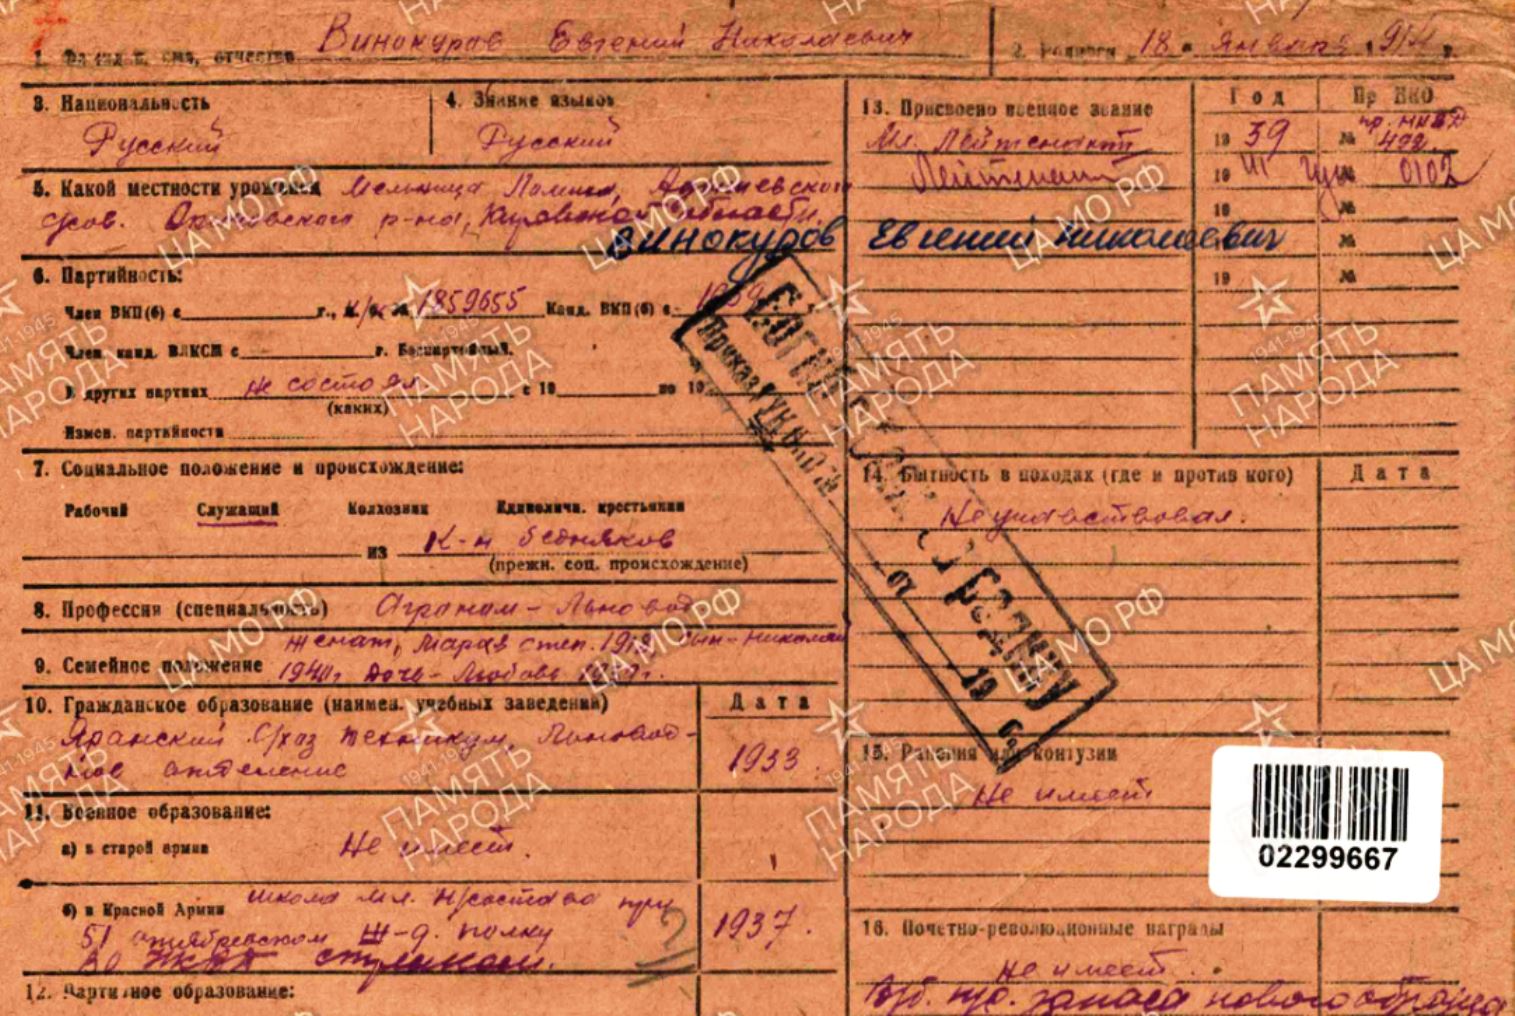 1. Фамилия, имя, отчество Винокуров Евгений Николаевич
2. Родился „18" января 1914 г.
3. Национальность
Русский
4. Знание языков
Русский
5. Какой местности уроженец Мельница Ломша,
сов. р-на, Кировской области.
Винокуров Евгений Николаевич
6. Партийность:
Член ВКП(б) с г., к/к № 1859655 Канд. ВКП(б) с 1939 г.
Член, канд. ВЛКСМ с г. Беспартейный.
В других партиях не состоял с 19 по 19
(каких)
Измен. партийности
7. Социальное положение и происхождение:
Рабочий Служащий Колхозник Единоличн. крестьянин
из К-н бедняков
(прежн. соц. происхождение)
8. Профессия (специальность) Агроном-Льновод
Женат, 1918 Сын-Николай
9. Семейное положение 1940г дочь-Любовь
10. Гражданское образование (наимен. учебных заведений) Дата
Яранский С/хоз техникум, Льновод-
ное отделение 1933.
11. Военное образование:
а) в старой армии Не имеет.
б) в Красной Армии школа мл. н/состава при
51 полку 1937.
12. Партийное образование:
13. Присвоено военное звание Год Пр НКО
Мл. Лейтенант 19 39 № пр. НКВД 492.
Лейтенант 19 41 № 0102
19 №
№
19 №
14. Бытность в походах (где и против кого) Дата
Не участвовал.
15. Ранения или контузии
Не имеет
16. Почетно-революционные награды
Не имеет.
запаса нового образца
Приказ
от 19
02299667
ЦАМО РФ
1941-1945
ПАМЯТЬ
НАРОДА